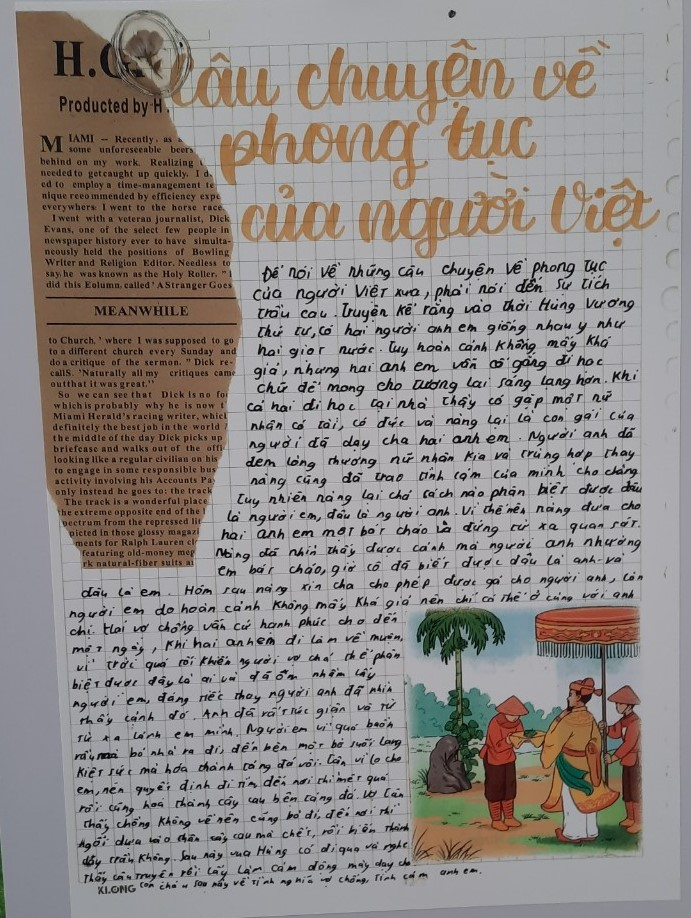 H.G.
Producted by H
MIAMI — Recently, as
some unforeseeable beers
behind on my work. Realizing
needed to get caught up quickly. I d
ed to employ a time-management te
nique reeommended by efficiency expe
everywhere: I went to the horse race.
I went with a veteran journalist, Dick
Evans, one of the select few people in
newspaper history ever to have simulta-
neously held the positions of Bowling
Writer and Religion Editor. Needless to
say, he was known as the Holy Roller. "
did this Eplumn. called 'A Stranger Goes
MEANWHILE
to Church,' where I was supposed to go
to a different church every Sunday and
do a critique of the sermon. " Dick re-
callS. 'Naturally all my critiques came
out that it was great."
So we can see that Dick is no fo
which is probably why he is now t
Miami Herald's racing writer, whicl
definitely the best job in the world
the middle of the day Dick picks up
briefcase and walks out of the offi
looking like a regular civilian on his
to engage in some responsible bus
activity involving his Accounts Pa
only instead he goes to: the track
The track is a wonderful place
the extreme opposite end of the
pectrum from the repressed lif
picted in those glossy magaz
ments for Ralph Lauren cl
featuring old-money mep
rk natural-fiber suits ai
Câu chuyện về
phong tục
của người Việt
Để nói về những câu chuyện về phong tục
của người Việt xưa, phải nói đến Sự tích
trầu cau. Truyện kể rằng vào thời Hùng Vương
thứ tư, có hai người anh em giống nhau y như
hai giọt nước. Tuy hoàn cảnh không mấy khá
giả, nhưng hai anh em vẫn cố gắng đi học
chữ để mong cho tương lai sáng lạng hơn. Khi
cả hai đi học tại nhà thầy có gặp một nữ
nhân có tài, có đức và nàng lại là con gái của
người đã dạy cha hai anh em. Người anh đã
đem lòng thương nữ nhân kia và trùng hợp thay
nàng cũng đã trao tình cảm của mình cho chàng
Tuy nhiên nàng lại chả cách nào phân biệt được đâu
là người em, đâu là người anh. Vì thế nên nàng đưa cho
hai anh em một bát cháo và đứng từ xa quan sát.
Nàng đã nhìn thấy được cảnh mà người anh nhường
em bát cháo, giờ cô đã biết được đâu là anh và
đâu là em. Hôm sau nàng xin cha cho phép được gả cho người anh, còn
người em do hoàn cảnh không mấy khá giả nên chỉ có thể ở cùng với anh
chị. Hai vợ chồng vẫn cứ hạnh phúc cho đến
một ngày, khi hai anh em đi làm về muộn,
vì trời quá tối khiến người vợ chả thể phân
biệt được đây là ai và đã ôm nhầm lấy
người em, đáng tiếc thay người anh đã nhìn
thấy cảnh đó. Anh đã rất tức giận và từ
từ xa lánh em mình. Người em vì quá buồn
rầu mà bỏ nhà ra đi, đến bên một bờ suối lang
kiệt sức mà hóa thành tảng đá vôi. Tân vì lo cho
em, nên quyết định đi tìm đến nơi thì mệt quá
rồi cũng hoá thành cây cau bên tảng đá. Vợ Tân
thấy chồng không về nên cũng bỏ đi, đến nơi thì
ngồi dựa vào thân cây cau mà chết, rồi biến thành
dây trầu không. Sau này vua Hùng có đi qua và nghe
thấy câu truyện rồi lấy làm cảm động mấy dạy cho
con cháu sau này về tình nghĩa vợ chồng, tình cảm anh em.
KLONG